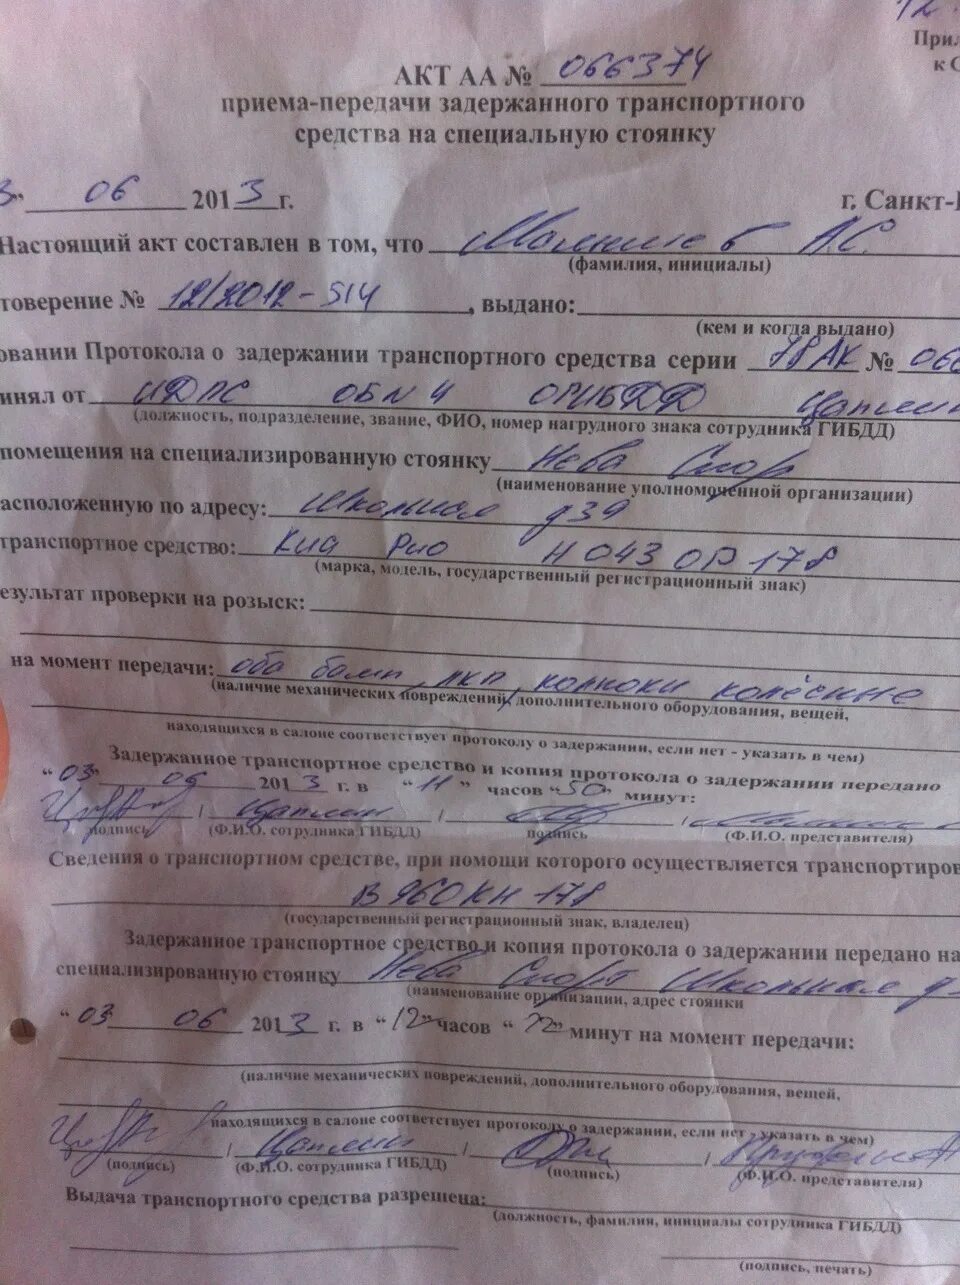 12
Прил
к С
АКТ АА № 066374
приема-передачи задержанного транспортного
средства на специальную стоянку
3" 06 2013 г. г. Санкт-
Настоящий акт составлен в том, что А.С.
(фамилия, инициалы)
товерение № 12/2012-514, выдано:
(кем и когда выдано)
овании Протокола о задержании транспортного средства серии 78АК № 066
инял от ИДПС ОБ№4 ОГИБДД Цаплин
(должность, подразделение, звание, ФИО, номер нагрудного знака сотрудника ГИБДД)
помещения на специализированную стоянку Нева Спорт
(наименование уполномоченной организации)
асположенную по адресу: Школьная д39
транспортное средство: Киа Рио Н 043 ОР 178
(марка, модель, государственный регистрационный знак)
езультат проверки на розыск:
на момент передачи: оба бамп, лкп, колпоки колёсные
(наличие механических повреждений, дополнительного оборудования, вещей,
находящихся в салоне соответствует протоколу о задержании, если нет - указать в чем)
Задержанное транспортное средство и копия протокола о задержании передано
"03" 06 2013 г. в "11" часов "50" минут:
/ Цаплин / /
подпись (Ф.И.О. сотрудника ГИБДД) подпись (Ф.И.О. представителя)
Сведения о транспортном средстве, при помощи которого осуществляется транспортиров
В 960 КН 178
(государственный регистрационный знак, владелец)
Задержанное транспортное средство и копия протокола о задержании передано на
специализированную стоянку Нева Спорт Школьная д
(наименование организации, адрес стоянки
"03 06 2013 г. в "12" часов " " минут на момент передачи:
(наличие механических повреждений, дополнительного оборудования, вещей,
находящихся в салоне соответствует протоколу о задержании, если нет - указать в чем)
/ Цаплин / /
(подпись) (Ф.И.О. сотрудника ГИБДД) (подпись) (Ф.И.О. представителя)
Выдача транспортного средства разрешена:
(должность, фамилия, инициалы сотрудника ГИБДД)
(подпись, печать)